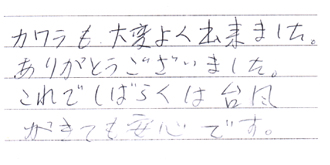 カワラも大変よく出来ました。
ありがとうございました。
これでしばらくは台風
がきても安心です。